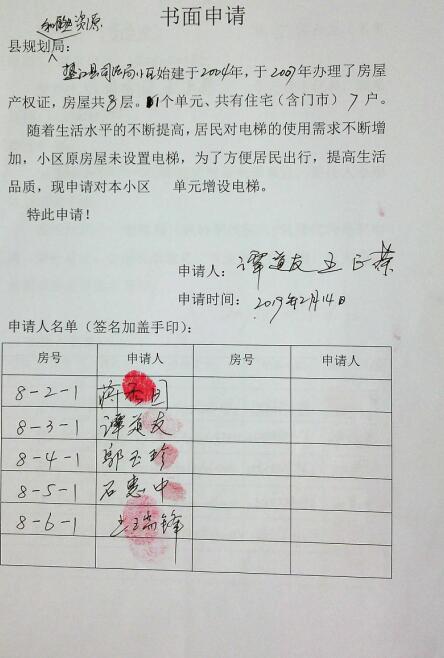 书面申请
和自然资源
县规划局：
垫江县司法局小区始建于2004年，于2007年办理了房屋
产权证，房屋共8层。1个单元、共有住宅（含门市）7户。
随着生活水平的不断提高，居民对电梯的使用需求不断增
加，小区原房屋未设置电梯，为了方便居民出行，提高生活
品质，现申请对本小区 单元增设电梯。
特此申请！
申请人：谭道友 王正荣
申请时间：2019年2月14日
申请人名单（签名加盖手印）：
房号 申请人 房号 申请人
8-2-1 蒋 国
8-3-1 谭道友
8-4-1 邬玉珍
8-5-1 石惠中
8-6-1 王瑞锋